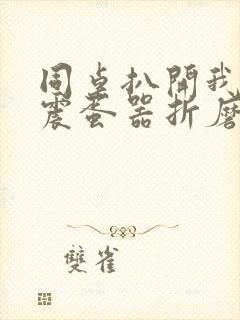 同桌扒開我
震蛋器折磨
雙雀